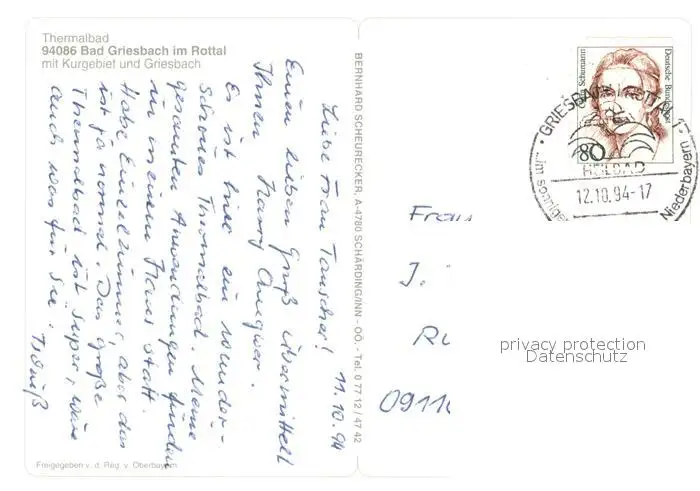 Thermalbad
94086 Bad Griesbach im Rottal
mit Kurgebiet und Griesbach
11.10.94
Liebe Frau Tauscher!
Einen lieben Gruß übermittelt
Ihnen Harry
Es ist hier ein wunder-
schönes Thermalbad. Meine
gesamten Anwendungen finden
nur in einem Haus statt.
Habe Einzelzimmer, aber das
ist ja normal. Das große
Thermalbad ist super, wäre
auch was für Sie.
Tschüß
Freigegeben v. d. Reg. v. Oberbayern
BERNHARD SCHEURECKER, A-4780 SCHÄRDING/INN - OÖ. - Tel. 0 77 12 / 47 42
Deutsche Bundespost
80
12.10.94-17
Niederbayern
Frau
J.
09116
privacy protection
Datenschutz